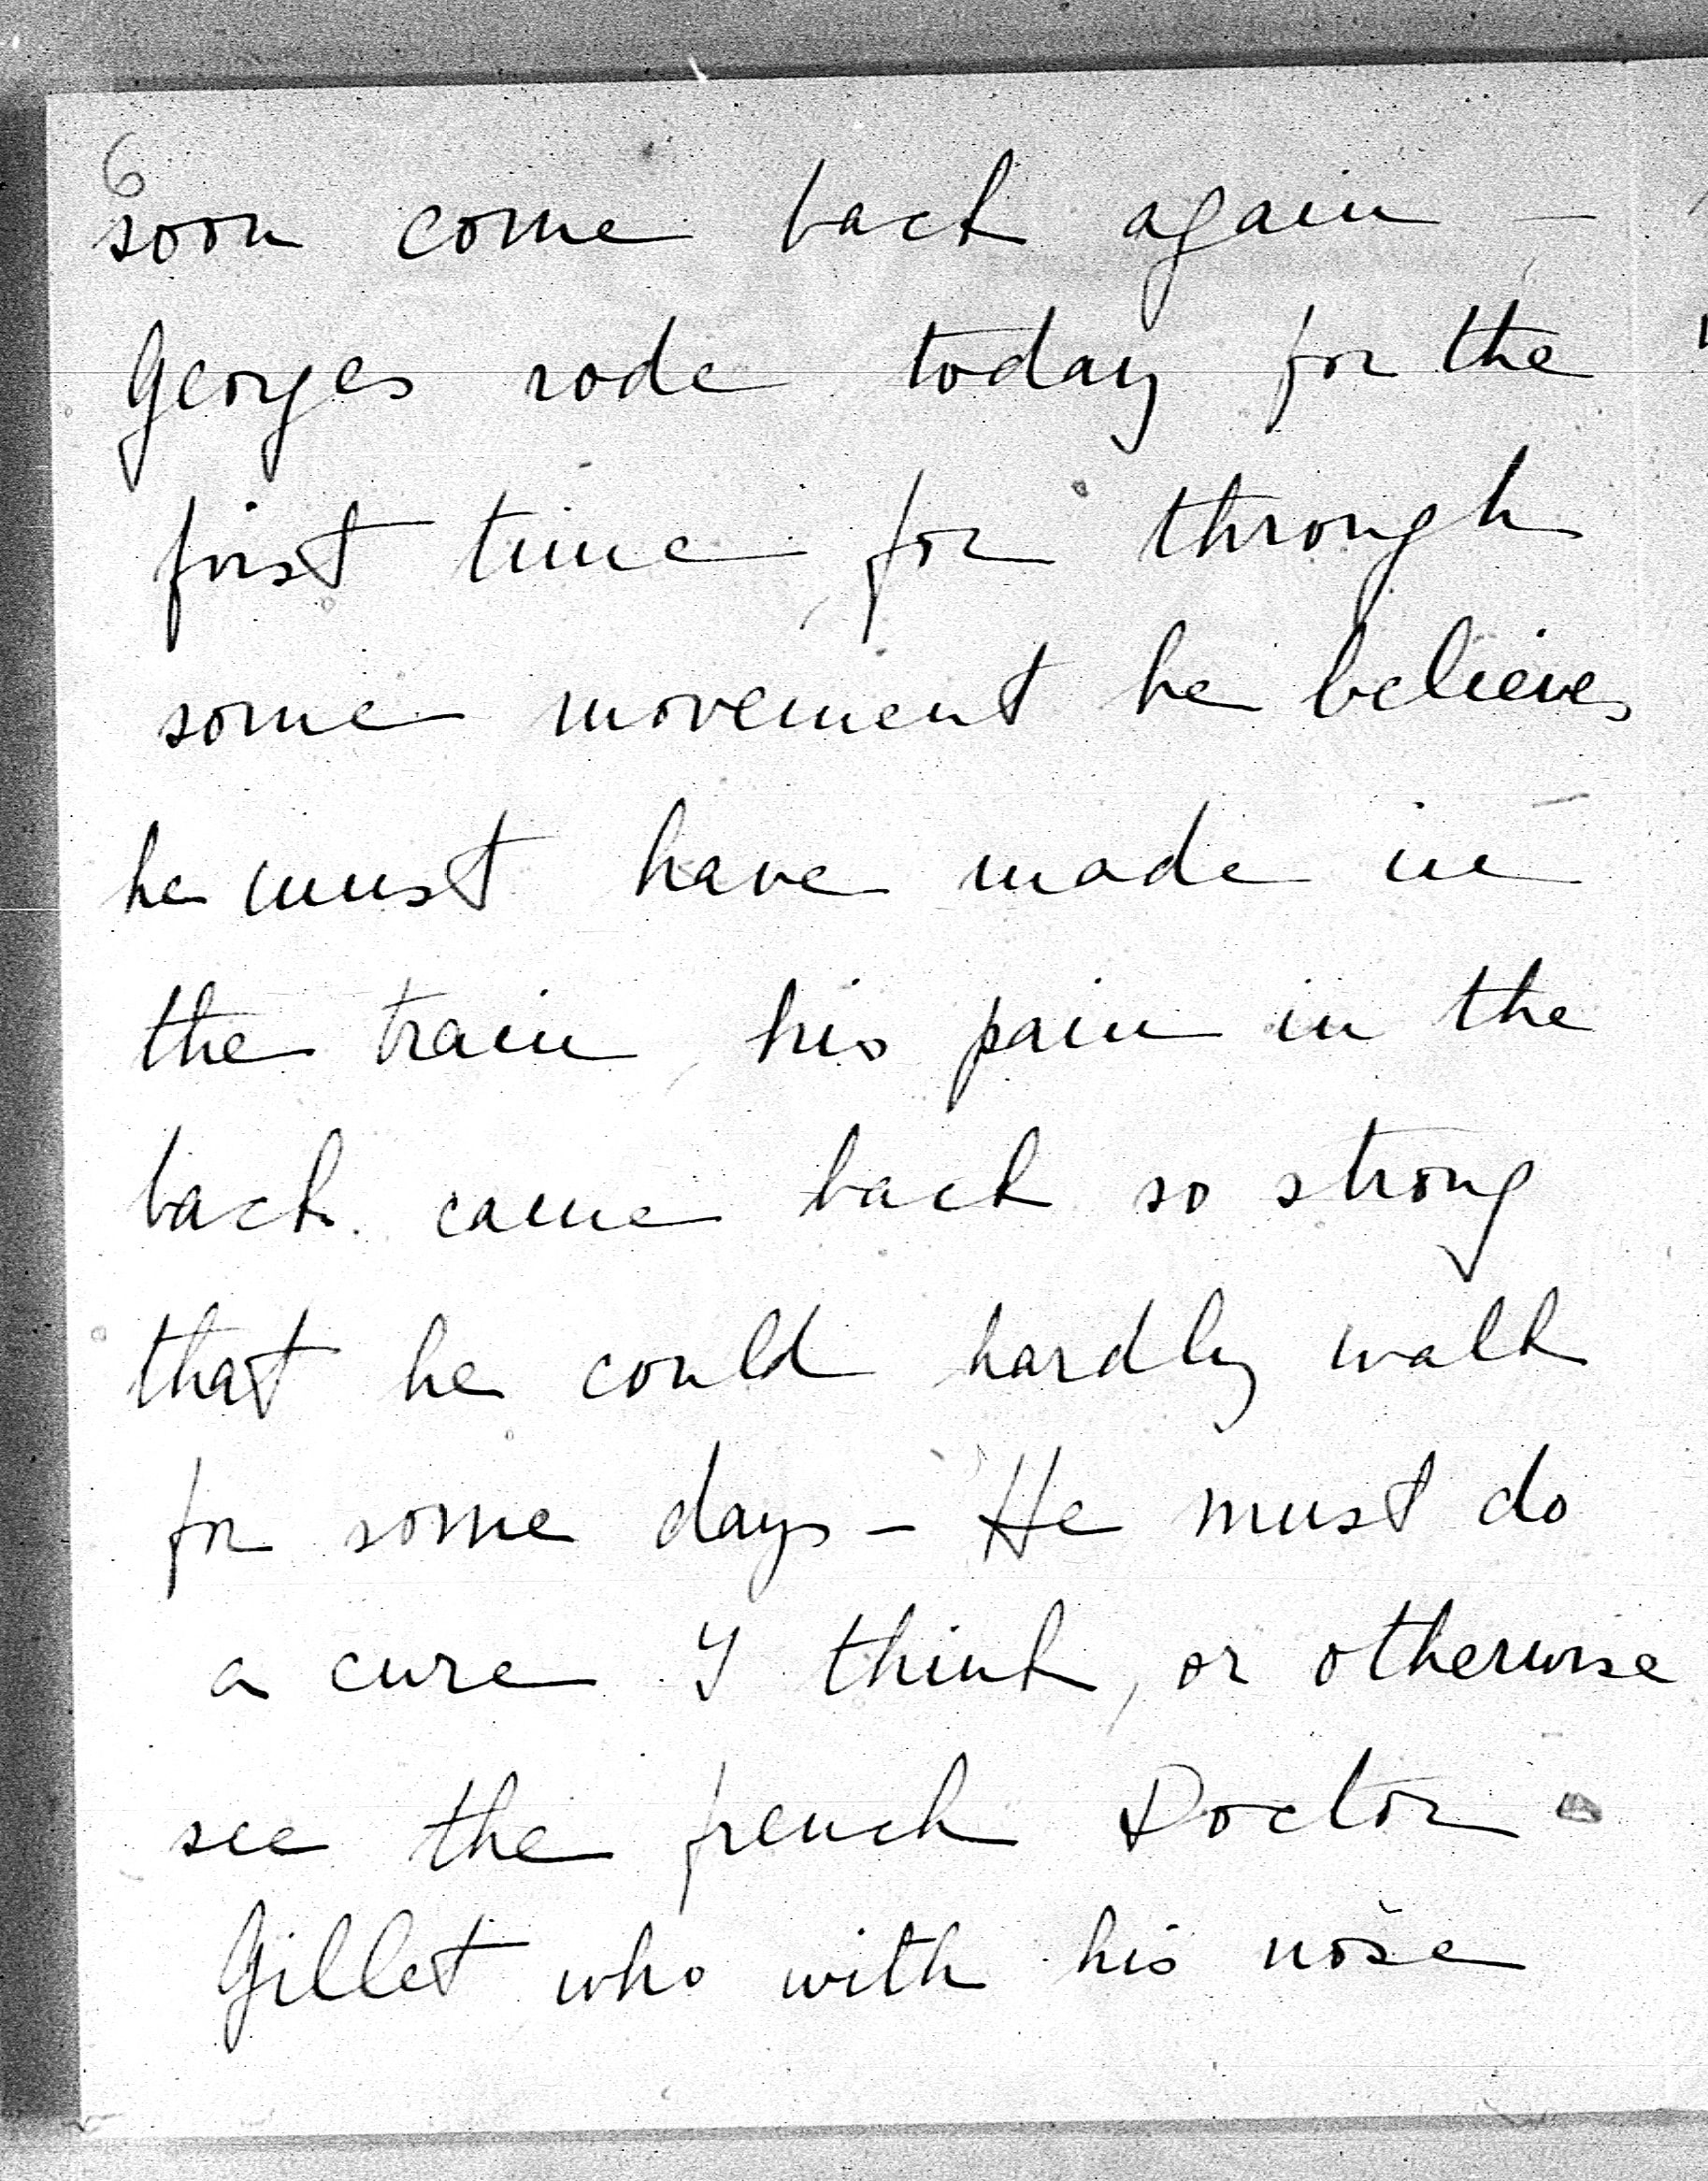 6
soon come back again –
Georges rode today for the
first time, for through
some movement he believes
he must have made in
the train, his pain in the
back came back so strong
that he could hardly walk
for some days – He must do
a cure I think, or otherwise
see the french Doctor
Gillet who with his nose